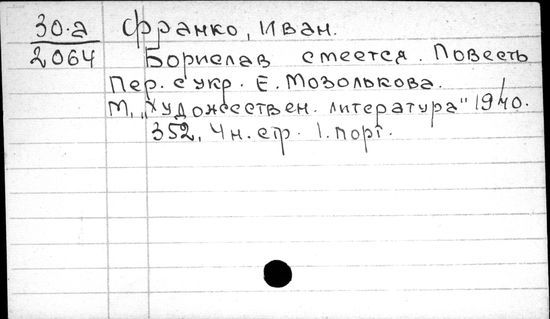 30.а Франко, Иван.
2064 Борислав смеется. Повесть
Пер. с укр. Е. Мозолькова.
М., „Художествен. литература" 1940.
352, 4 н. стр. 1. порт.